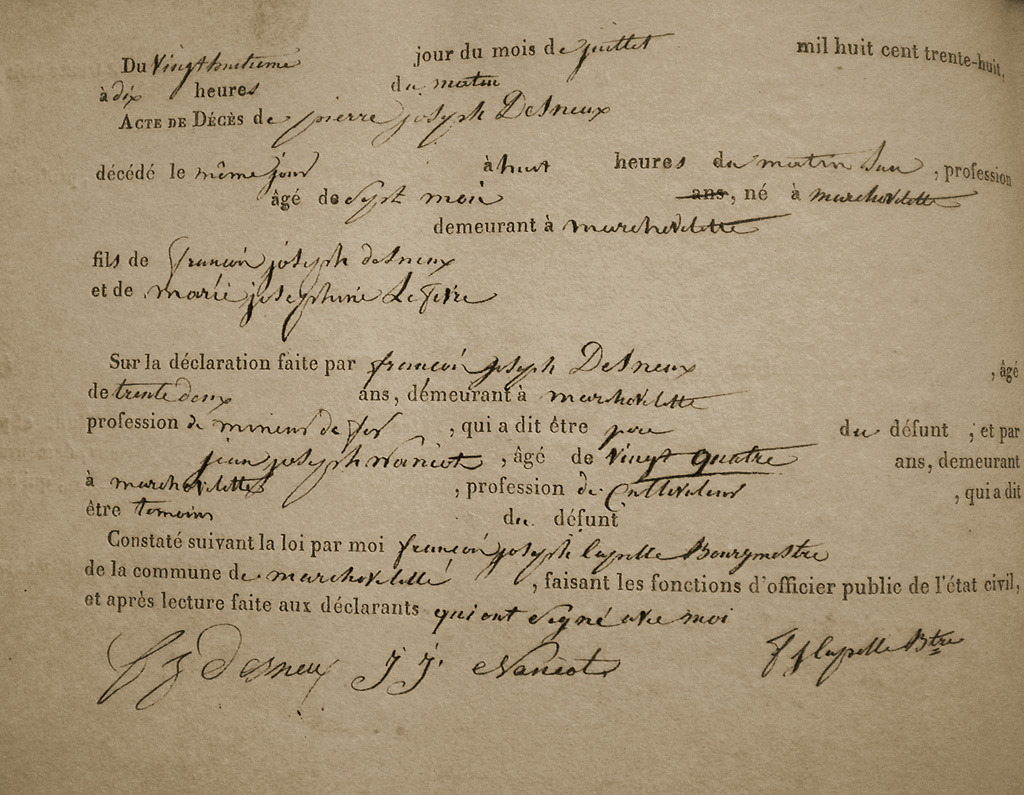 Du Vingthuitieme jour du mois de juillet mil huit cent trente-huit,
à dix heures du matin
ACTE DE DÉCÈS de pierre joseph Desneux
décédé le même jour à huit heures du matin san , profession
âgé de Sept mois ans, né à marchovelette
demeurant à marchovelette
fils de françois joseph desneux
et de marie josephine Lefevre
Sur la déclaration faite par françois joseph Desneux , âgé
de trente deux ans, demeurant à marchovelette
profession de mineur de fer , qui a dit être pere du défunt , et par
jean joseph Naniot , âgé de Vingt quatre ans, demeurant
à marchovelette , profession de Cultivateur , qui a dit
être temoin du défunt
Constaté suivant la loi par moi françois joseph lapelle Bourgmestre
de la commune de marchovelette , faisant les fonctions d'officier public de l'état civil,
et après lecture faite aux déclarants qui ont Signé avec moi
f j Desneux J J. Naniot F J lapelle Btre